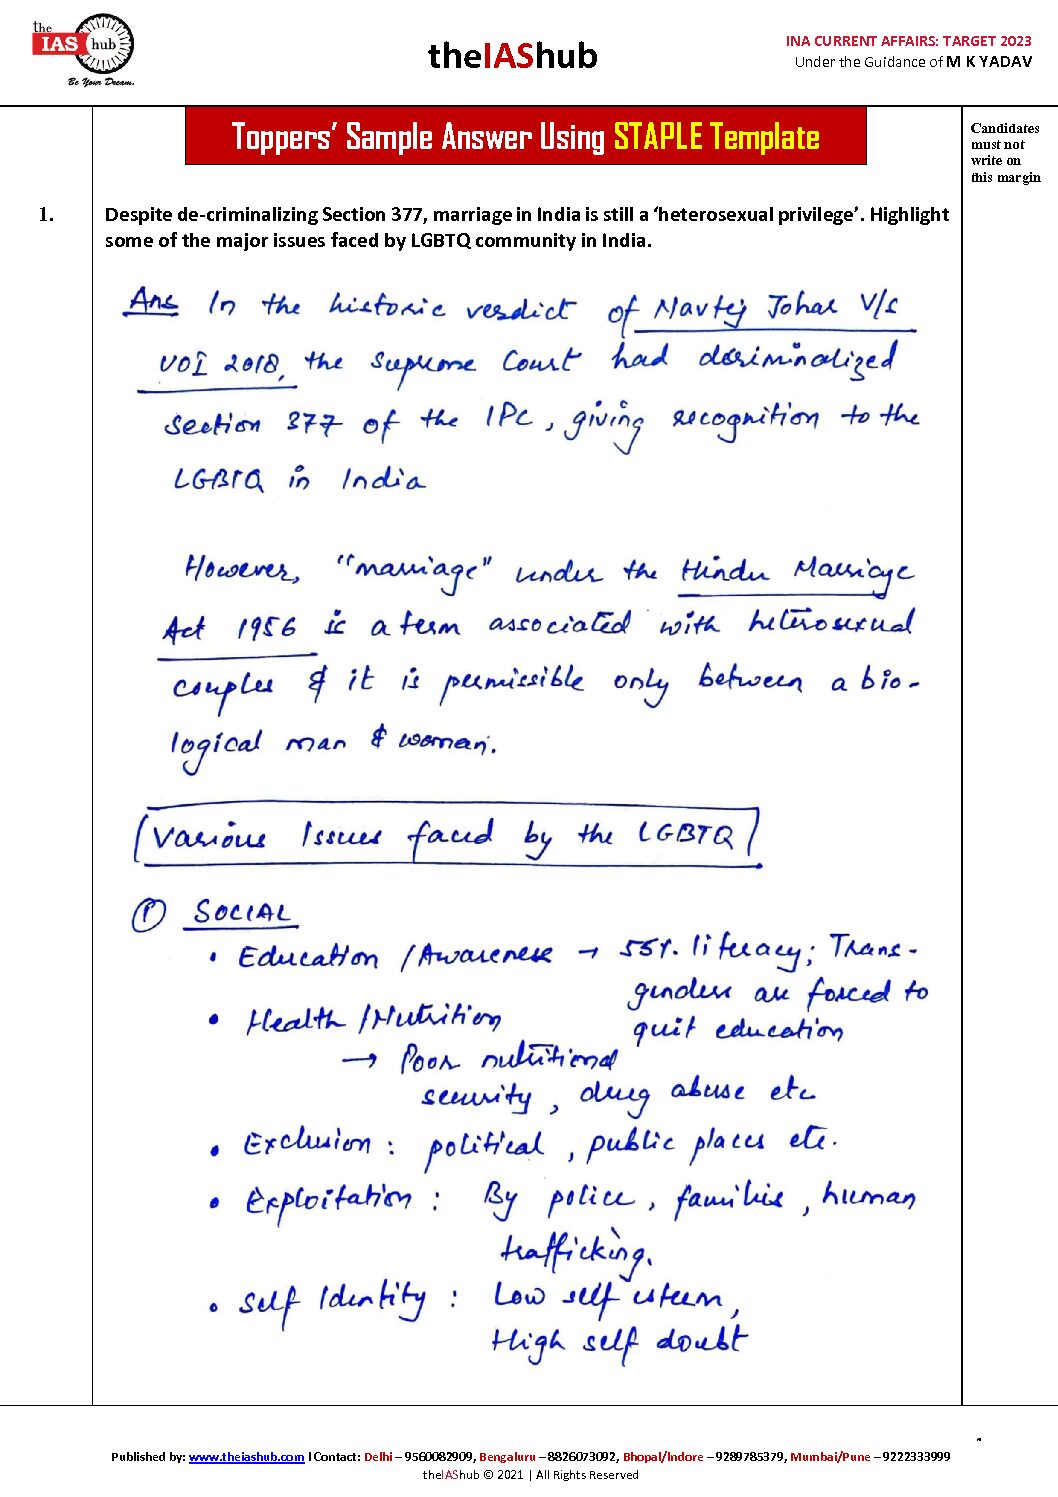 the
IAS hub
Be Your Dream.
theIAShub
INA CURRENT AFFAIRS: TARGET 2023
Under the Guidance of M K YADAV
Toppers’ Sample Answer Using STAPLE Template
Candidates
must not
write on
this margin
1.
Despite de-criminalizing Section 377, marriage in India is still a ‘heterosexual privilege’. Highlight
some of the major issues faced by LGBTQ community in India.
Ans In the historic verdict of Navtej Johar V/s
UOI 2018, the Supreme Court had decriminalized
Section 377 of the IPC, giving recognition to the
LGBTQ in India
However, "marriage" under the Hindu Marriage
Act 1956 is a term associated with heterosexual
couples & it is permissible only between a bio-
logical man & woman.
Various Issues faced by the LGBTQ
① SOCIAL
• Education /Awareness → 55%. literacy; Trans-
genders are forced to
quit education
• Health /Nutrition
→ Poor nutritional
security, drug abuse etc
• Exclusion : political, public places etc.
• Exploitation : By police, families, human
trafficking.
• Self Identity : Low self esteem,
High self doubt
Published by: www.theiashub.com l Contact: Delhi – 9560082909, Bengaluru – 8826073092, Bhopal/Indore – 9289785379, Mumbai/Pune – 9222333999
theIAShub © 2021 | All Rights Reserved